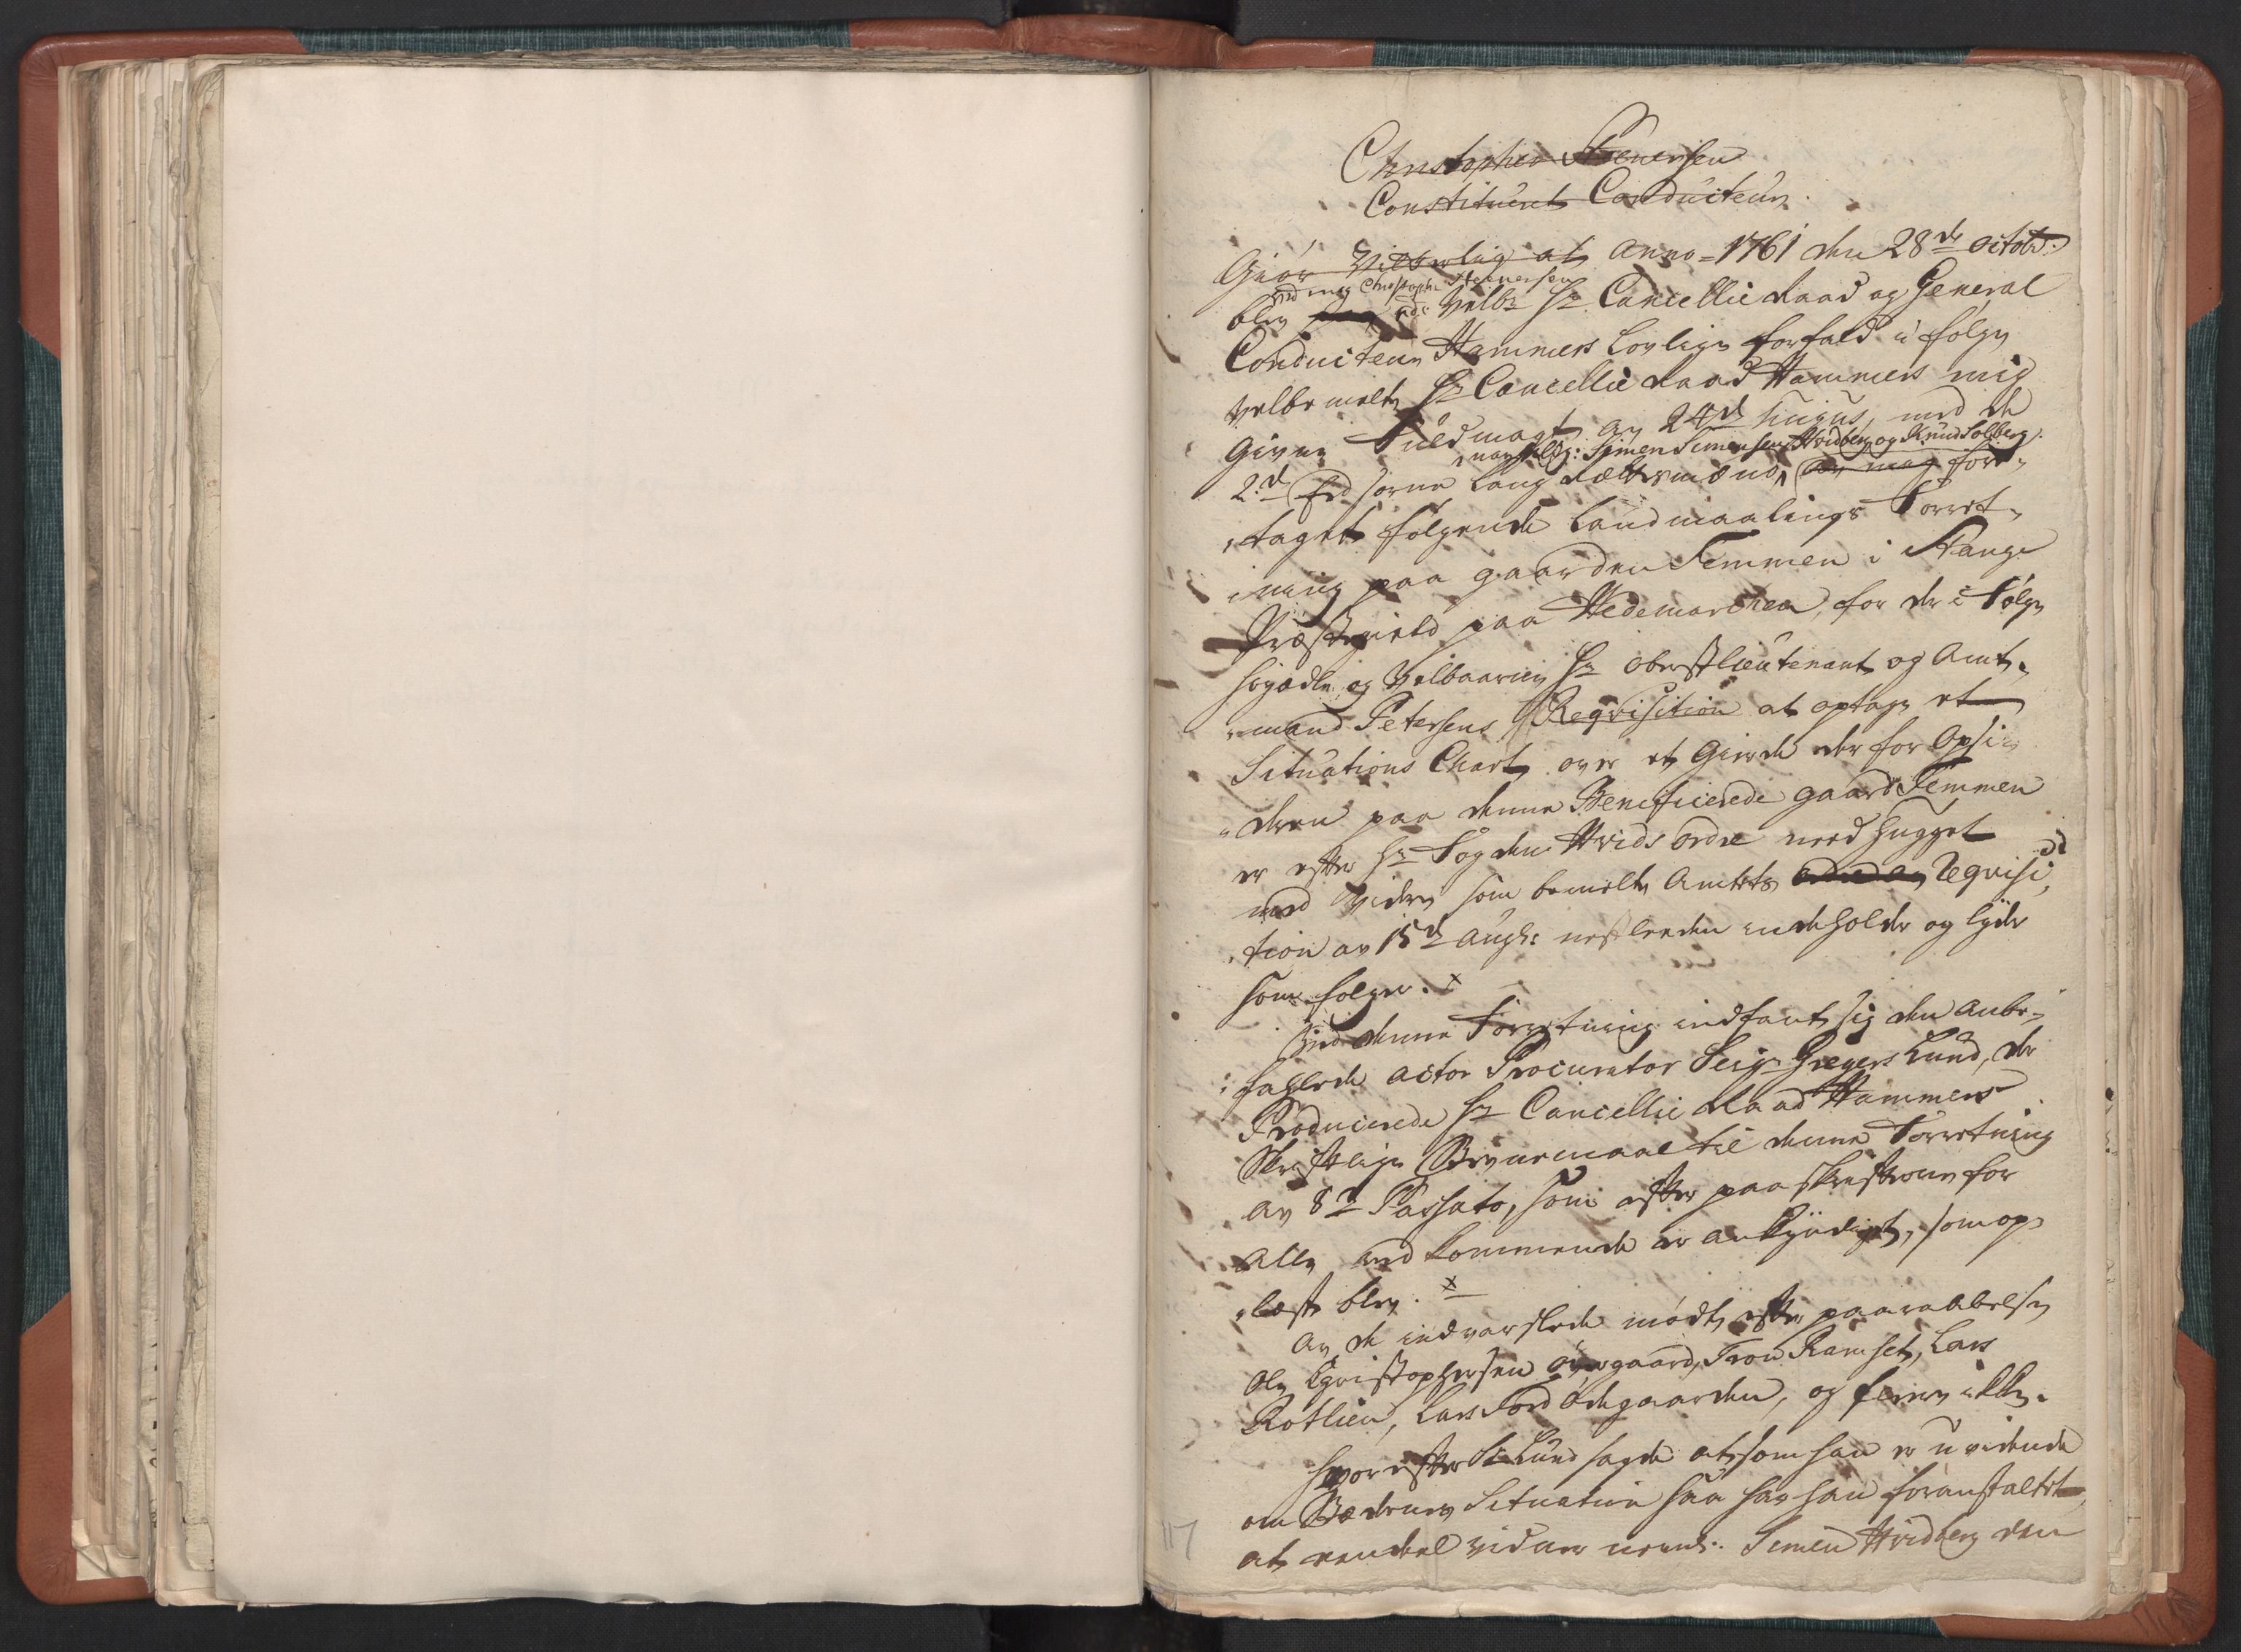 Christopher Steenersen
Constituert Conducteur.
Giør Vitterlig at anno 1761 den 28de octobr:
ved mig Christopher Steenersen
blev ved Velbr Hr Cancellie Raad og General
Conducteur Hammers Lovlige forfald i følge
velbemelte Hr Cancellie Raad Hammers mig
given Fuldmagt av 24de hujus, med de
navnlig: Simen Simensen Hvidberg og Knud Solberg.
2de Eed sorne Laugrættesmænd, av mig fore„
„taget følgende Landmaalings Forret„
„ning paa gaarden Femmen i Stange
Præstegield paa Hedemarchen, for der i Følge
høyædle og Velbaarne Hr Oberstlieutenant og Amt„
„mand Petersens Reqvisition at optage et
Situations Chart over et Gierde der for Opsid„
„deren paa denne Beneficerede gaard Femmen
er efter Hr Fogden Hvids ordre need hugget
med Videre som bemelte Amtets Reqvisi„
„tion av 15de Augs: nestleeden indeholder og lyder
som følger. x
Ved denne Forretning indfant sig den anbe„
„falede actor Procurator Seigr Gregers Lund, der
Producerede Hr Cancellie Raad Hammers
Skriftlige Berammelse til denne Forretning
av 8de Passato, som efter paaskrifterne for
alle vedkommende er ankyndiget, som op„
„læst blev. x
Av de indvarslede mødte efter paaraabelse
Ole Christophersen øvergaard, Tron Ramset, Lars
Rotlien, Lars Ford Ødegaarden, og fleere ikke.
Hvorefter Sr Lund sagde at som han er uvidende
om Stædernes Situation saa har han foranstaltet
at eendeel vidner nemlig: Simen Hvidberg den
117